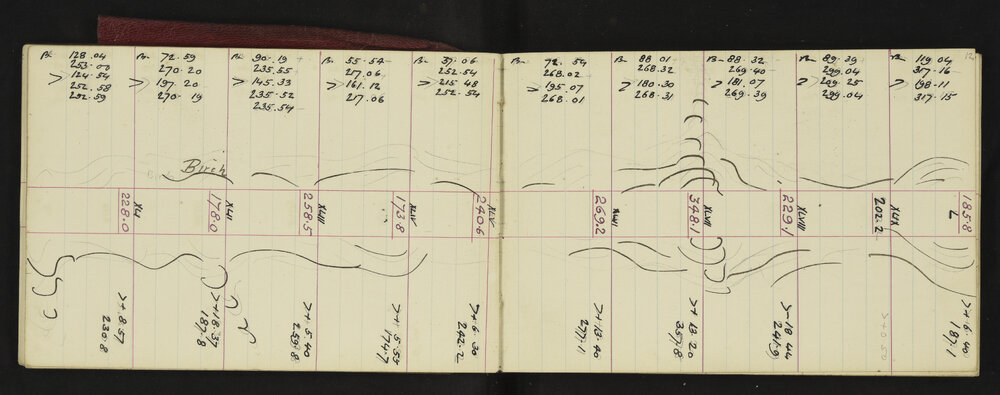 Bn 128.04
253.00
> 124.54
252.58
252.59
Bn 72.59
270.20
> 197.20
270.19
Bn 90.19
235.55
> 145.33
235.52
235.54
Bn 55.54
217.06
> 161.12
217.06
Bn 37.06
252.54
> 215.48
252.54
Birch
XLI
228.0
XLII
178.0
XLIII
258.5
XLIV
173.8
XLV
240.6
>+8.57
230.8
>+18.37
187.8
>+5.40
259.8
>+5.55
174.7
>+6.30
242.2
Bn 72.54
268.02
> 195.07
268.01
Bn 88.01
268.32
> 180.30
268.31
Bn 88.32
269.40
> 181.07
269.39
Bn 89.39
299.04
> 209.25
299.04
Bn 119.04
317.16
> 198.11
317.15
12
XLVI
269.2
XLVII
348.1
XLVIII
229.1
XLIX
202.2
L
185.8
>+13.40
277.1
>+13.20
357.8
>-18.44
241.9
>+0.50
>+6.40
187.1